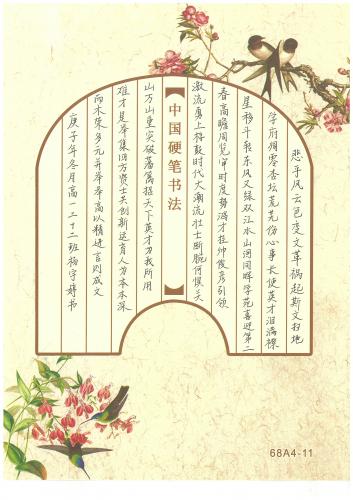 悲乎风云色变文革祸起斯文扫地
学府凋零杏坛荒芜伤心事长使英才泪满襟
星移斗转东风又绿双江水山河同晖学苑喜迎第二
春高瞻周览审时度势海才拉帅俊彦引领
激流勇上搏鼓时代大潮流壮士断腕何惧关
山万山重突破藩篱揽天下英才为我所用
难才是举集四方贤士共创新达育人为本本深
而木荣多元并举举高以精进言则成文
庚子年冬月高一二十二班杨宇婷书
中国硬笔书法
68A4-11